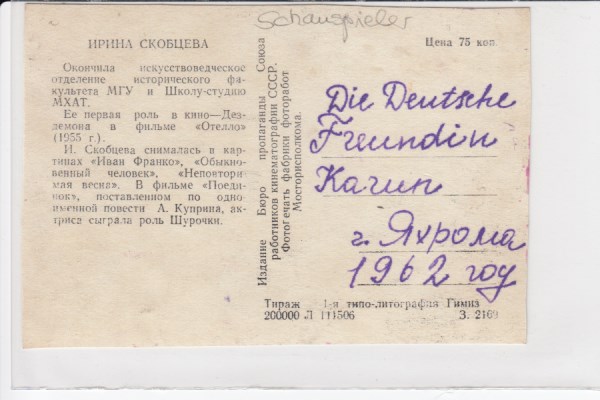 Schauspieler
ИРИНА СКОБЦЕВА
Окончила искусствоведческое
отделение исторического фа-
культета МГУ и Школу-студию
МХАТ.
Ее первая роль в кино—Дез-
демона в фильме «Отелло»
(1955 г.).
И. Скобцева снималась в кар-
тинах «Иван Франко», «Обыкно-
венный человек», «Неповтори-
мая весна». В фильме «Поеди-
нок», поставленном по одно-
именной повести А. Куприна, ак-
триса сыграла роль Шурочки.
Издание Бюро пропаганды Союза
работников кинематографии СССР.
Фотопечать фабрики фоторабот
Мосгорисполкома.
Цена 75 коп.
Die Deutsche
Freundin
Karin
г. Яхрома
1962 год
Тираж 1-я типо-литография Гимиз
200000 Л 111506 З. 2169